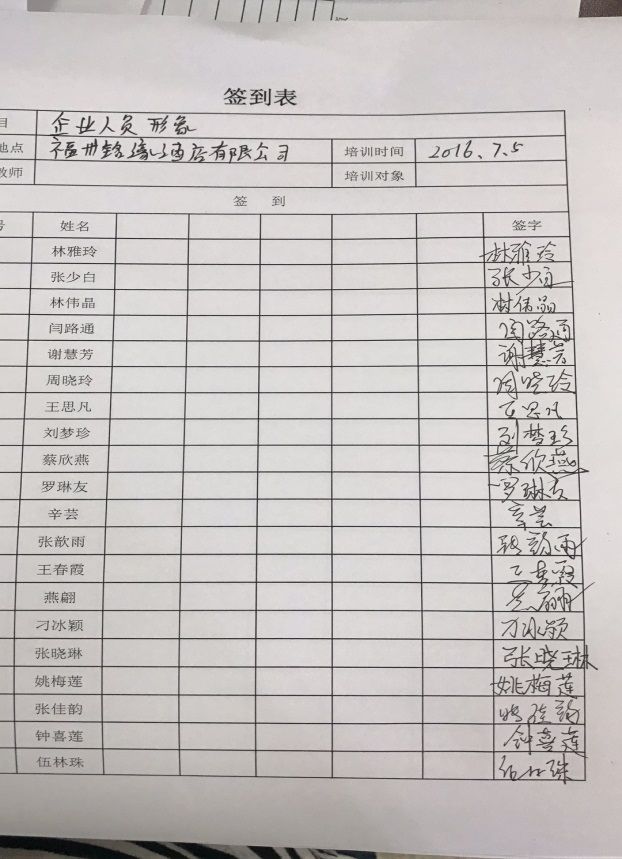 签到表
目 企业人员形象
地点 福州铭濠酒店有限公司 培训时间 2016.7.5
教师 培训对象
签 到
号 姓名 签字
林雅玲 林雅玲
张少白 张少白
林伟晶 林伟晶
闫路通 闫路通
谢慧芳 谢慧芳
周晓玲 周晓玲
王思凡 王思凡
刘梦珍 刘梦珍
蔡欣燕 蔡欣燕
罗琳友 罗琳友
辛芸 辛芸
张歆雨 张韵雨
王春霞 王春霞
燕翩 燕翩
刁冰颖 刁冰颖
张晓琳 张晓琳
姚梅莲 姚梅莲
张佳韵 张佳韵
钟喜莲 钟喜莲
伍林珠 伍林珠